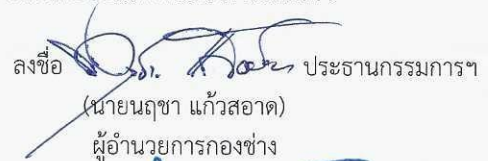 ลงชื่อ ประธานกรรมการฯ
(นายนฤชา แก้วสอาด)
ผู้อำนวยการกองช่าง